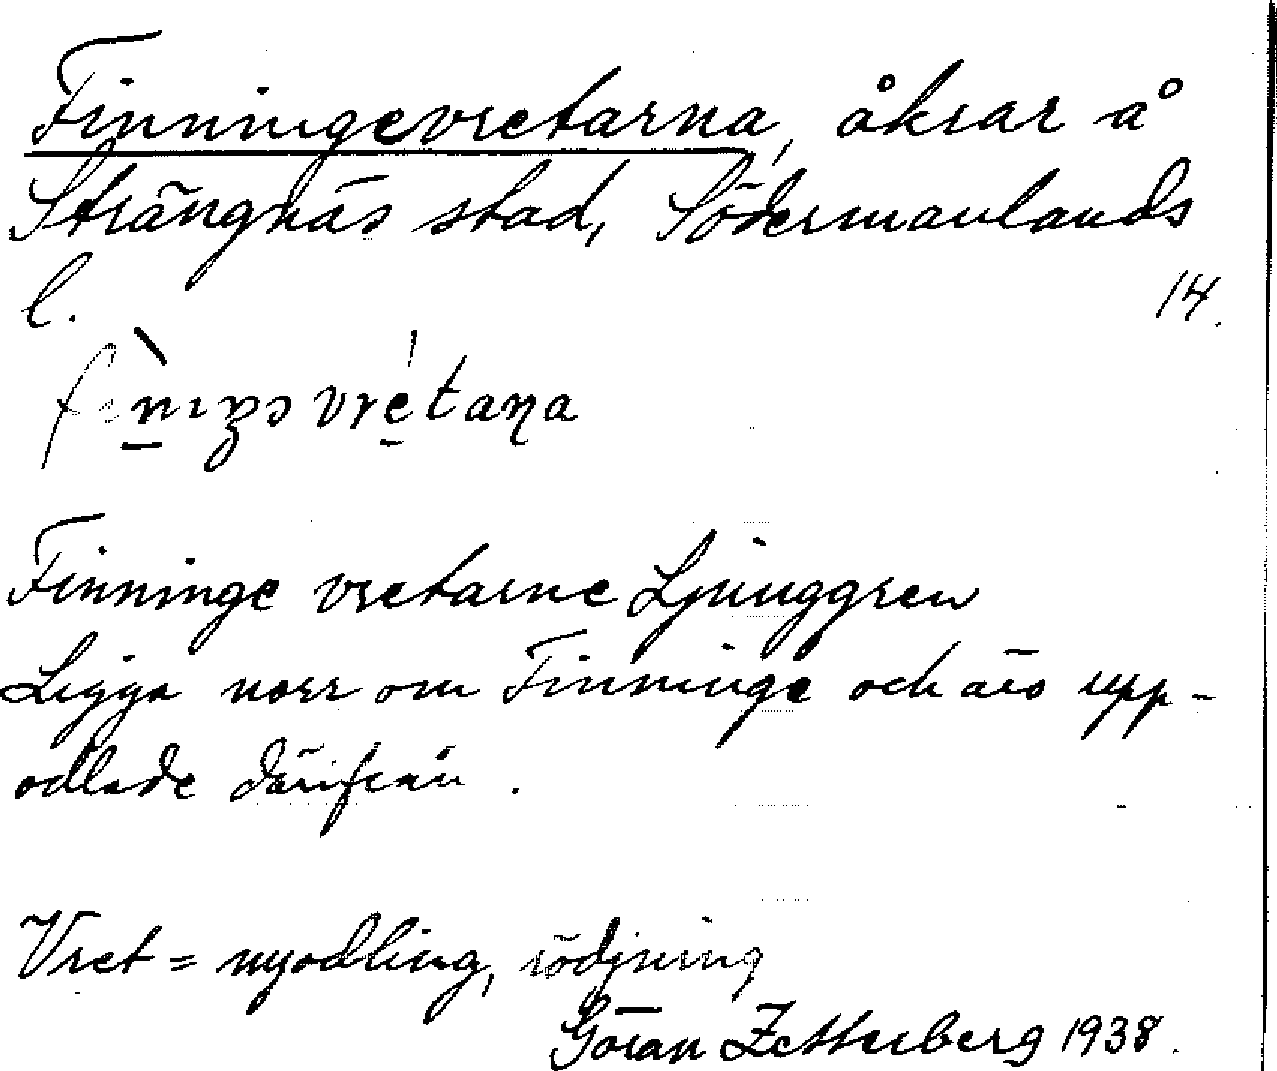 Finningevretarna, åkrar å
Strängnäs stad, Södermanlands
l. 14.
vretaṇa
Finninge vretarne Ljunggren
Ligga norr om Finninge och äro upp-
odlade därifrån.
Vret = nyodling, rödjning
Göran Zetterberg 1938.